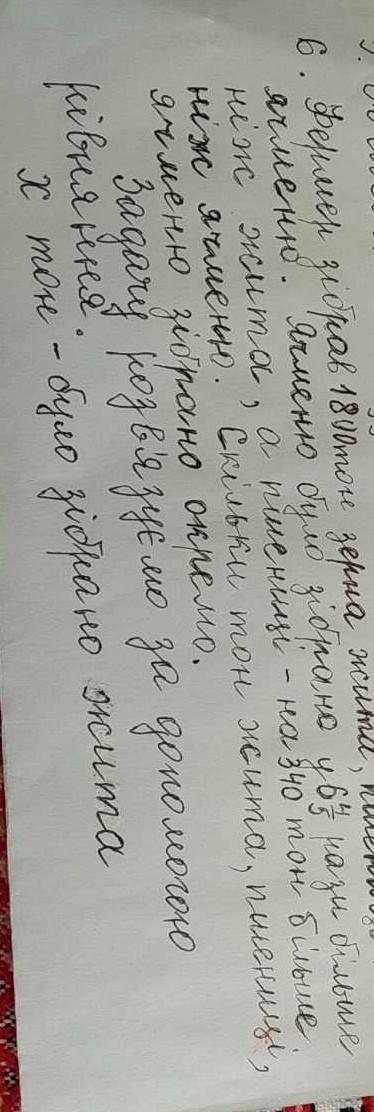 6. Фермер зібрав 1800 тон зерна жита, пшениці
ячменю. Ячменю було зібрано у 6 4/5 рази більше
ніж жита, а пшениці - на 340 тон більше
ніж ячменю. Скільки тон жита, пшениці,
ячменю зібрано окремо.
Задачу розв'язуємо за допомогою
рівняння.
х тон - було зібрано жита